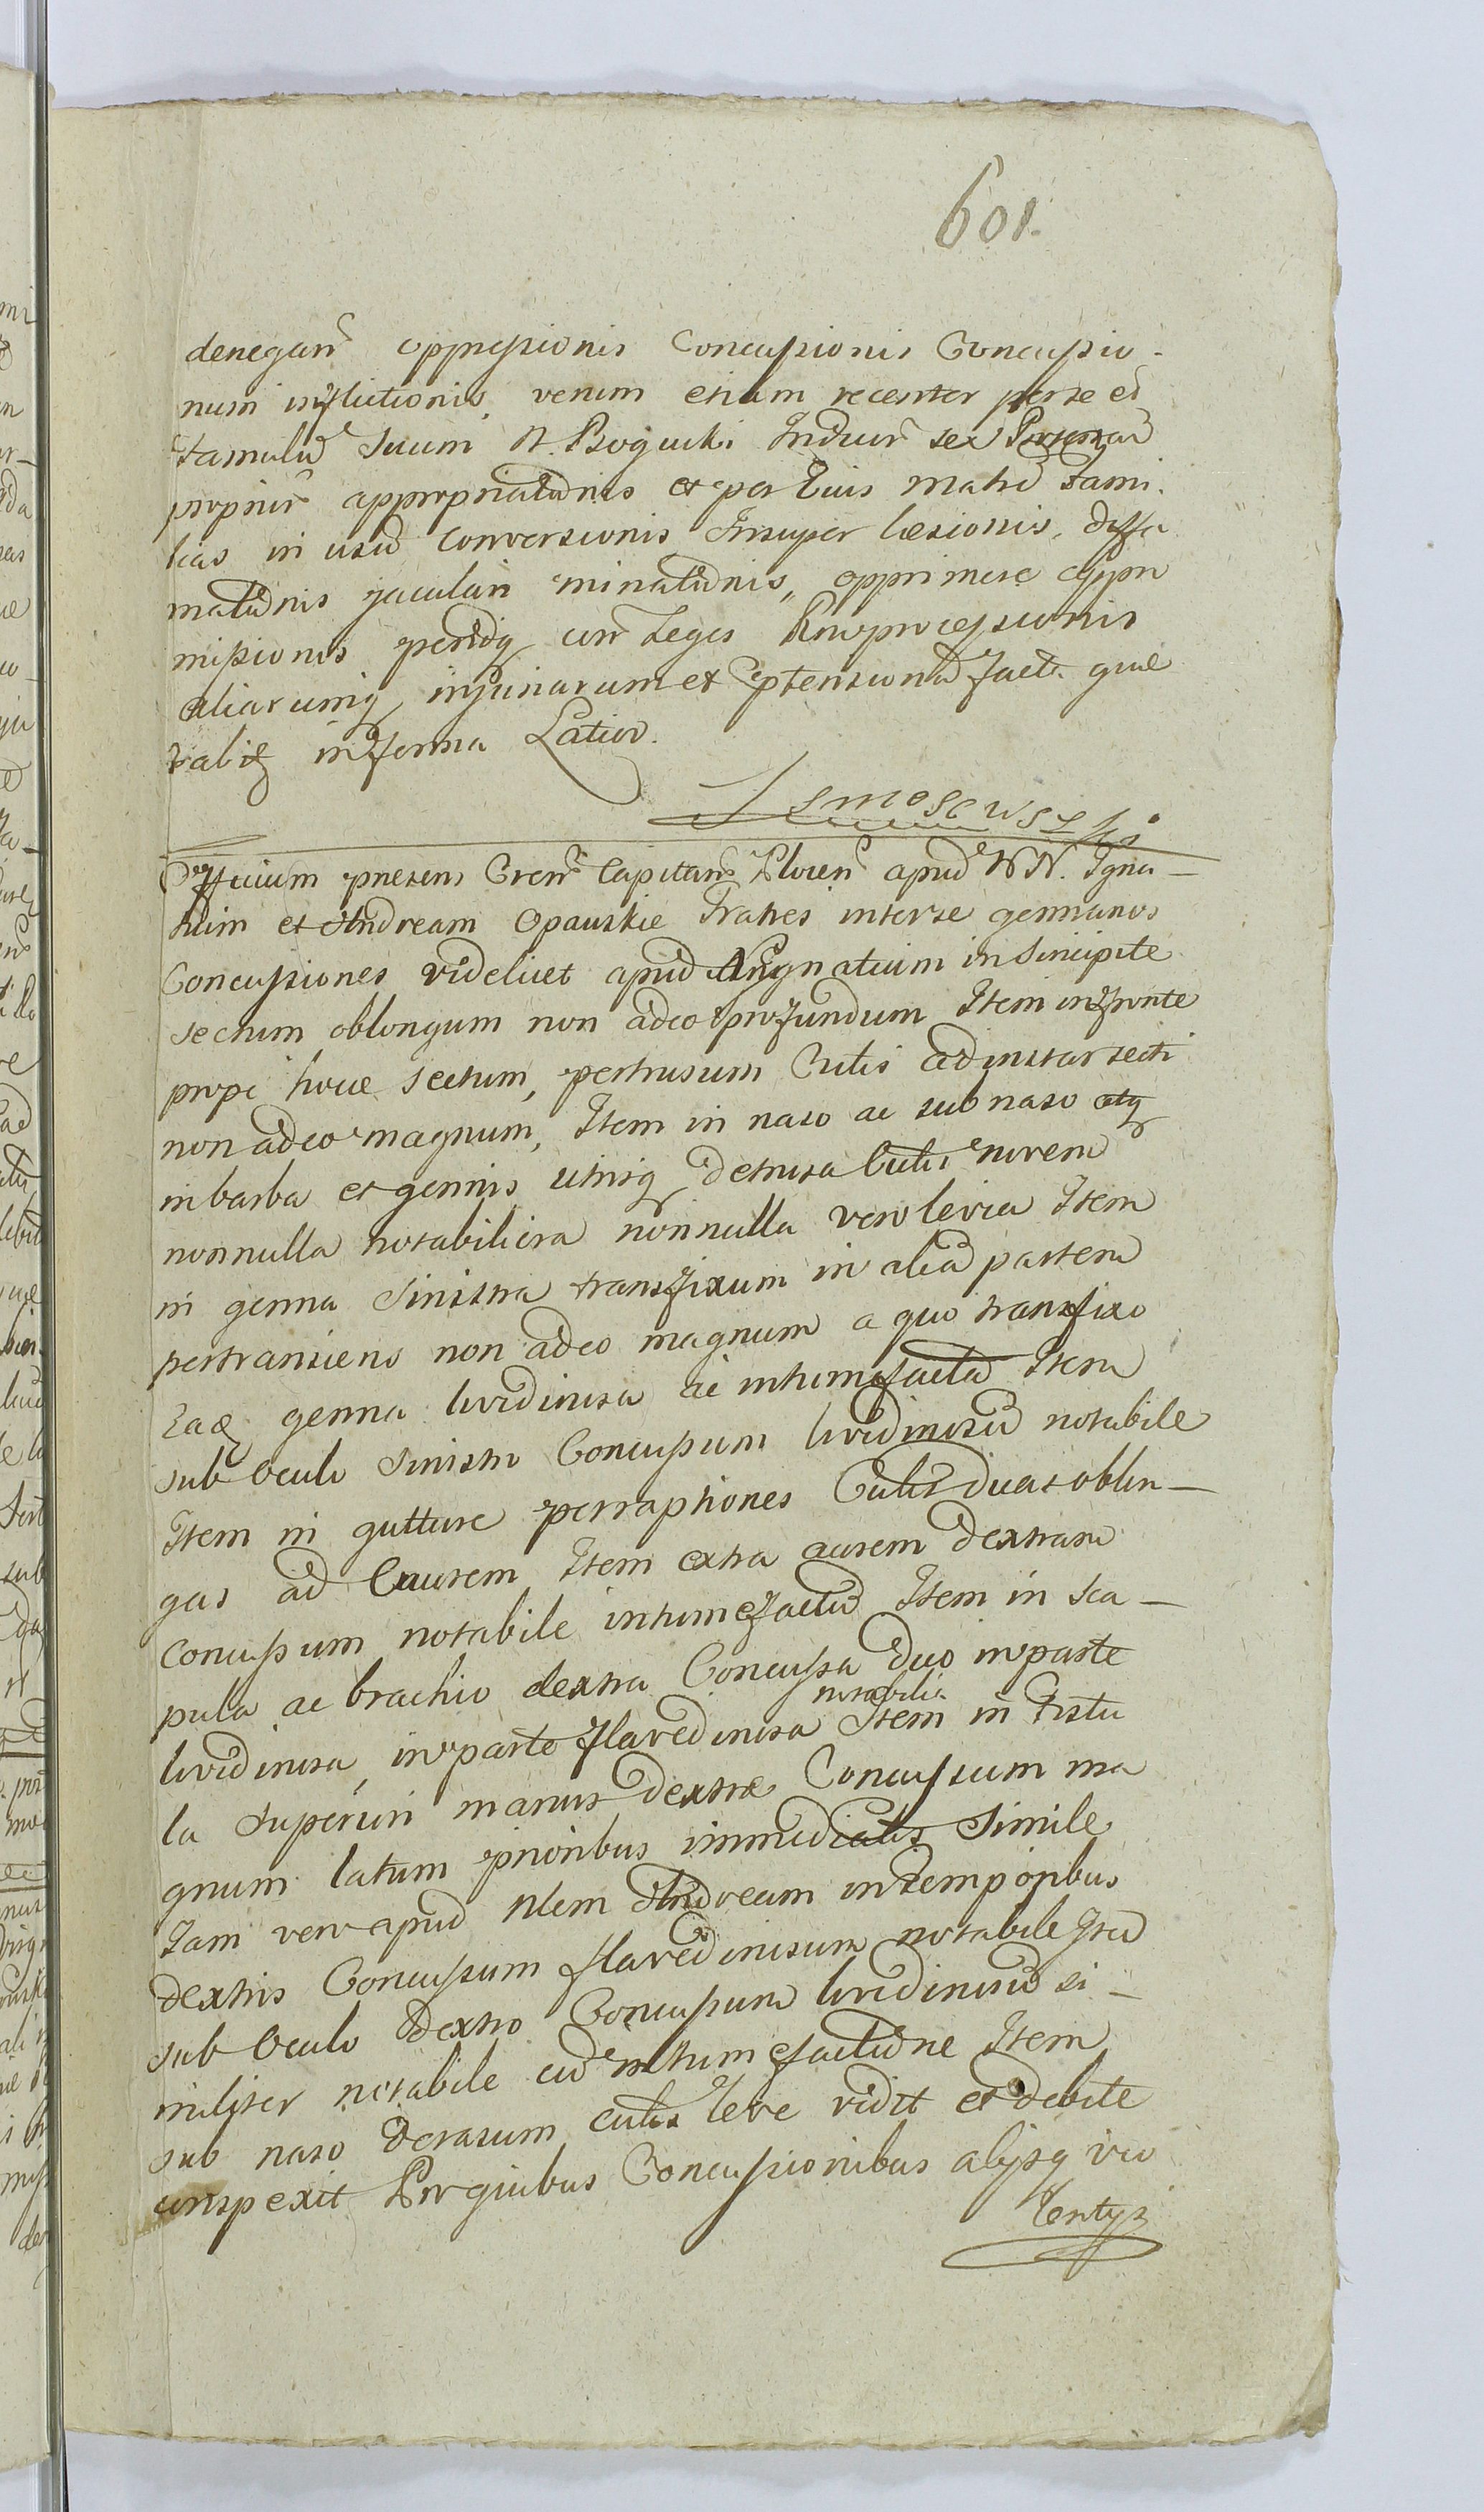 601.
denegan̄ oppressionis Concussionis Concussio-
num inflictionis, verum etiam recenter per se et
Famulū Suum N. Bogucki Induur̄ sex
propriar̄ appropriationis et per Eius matrē Fami.
lias in usū conversionis Insuper læsionis, diffa
mationis jaculari minationis, opprimere
missionis penitq con Leges Reoprocessionis
aliarumq injuriarum et ptensionū fact. qua
talitq in forma Latior.
Jemoscwski
Officium præsens Cren̄ Capitan̄ Plocen̄ apud NN. Igna-
tium et Andream Opauskie Fratres inter se germanos
Concussiones videlicet apud Ignatium in Sincipite
sectum oblongum non adeo profundum Item in fronte
prope hoce sectum, pertrusum Cutis ad instar secti
non adeo magnum, Item in naso ac sub naso atq
in barba et gennis utrisq detrusa Cutis rurem
nonnulla notabiliora nonnulla vero levia Item
in genna Sinistra transfixum in aliā partem
pertransiens non adeo magnum a quo transfixo
Eaq genna lividinosa ac intumefacta Item
sub Oculo Sinistro Concussum lividinosū notabile
Item in gutture perraptiones Cutis duas oblon-
gas ad Cruorem Item extra aurem dextram
concussum notabile intumefactū Item in sca-
pula ac brachio dextra Concussa duo in parte
lividinosa, in parte flavedinosa notabilia Item in Fistu
la superiori manus dextræ Concussum ma
gnum latum prioribus immediatis Simile
Iam vero apud Nlem Andream in temporibus
dextris Concussum flavedinosum notabile Itē
sub Oculo Dextro Concussum lividinosū si-
militer notabile cū intumefactione Item
sub naso derasum cutis leve vidit et debite
conspexit Pro quibus Concussionibus alijsq vio
Lentijs